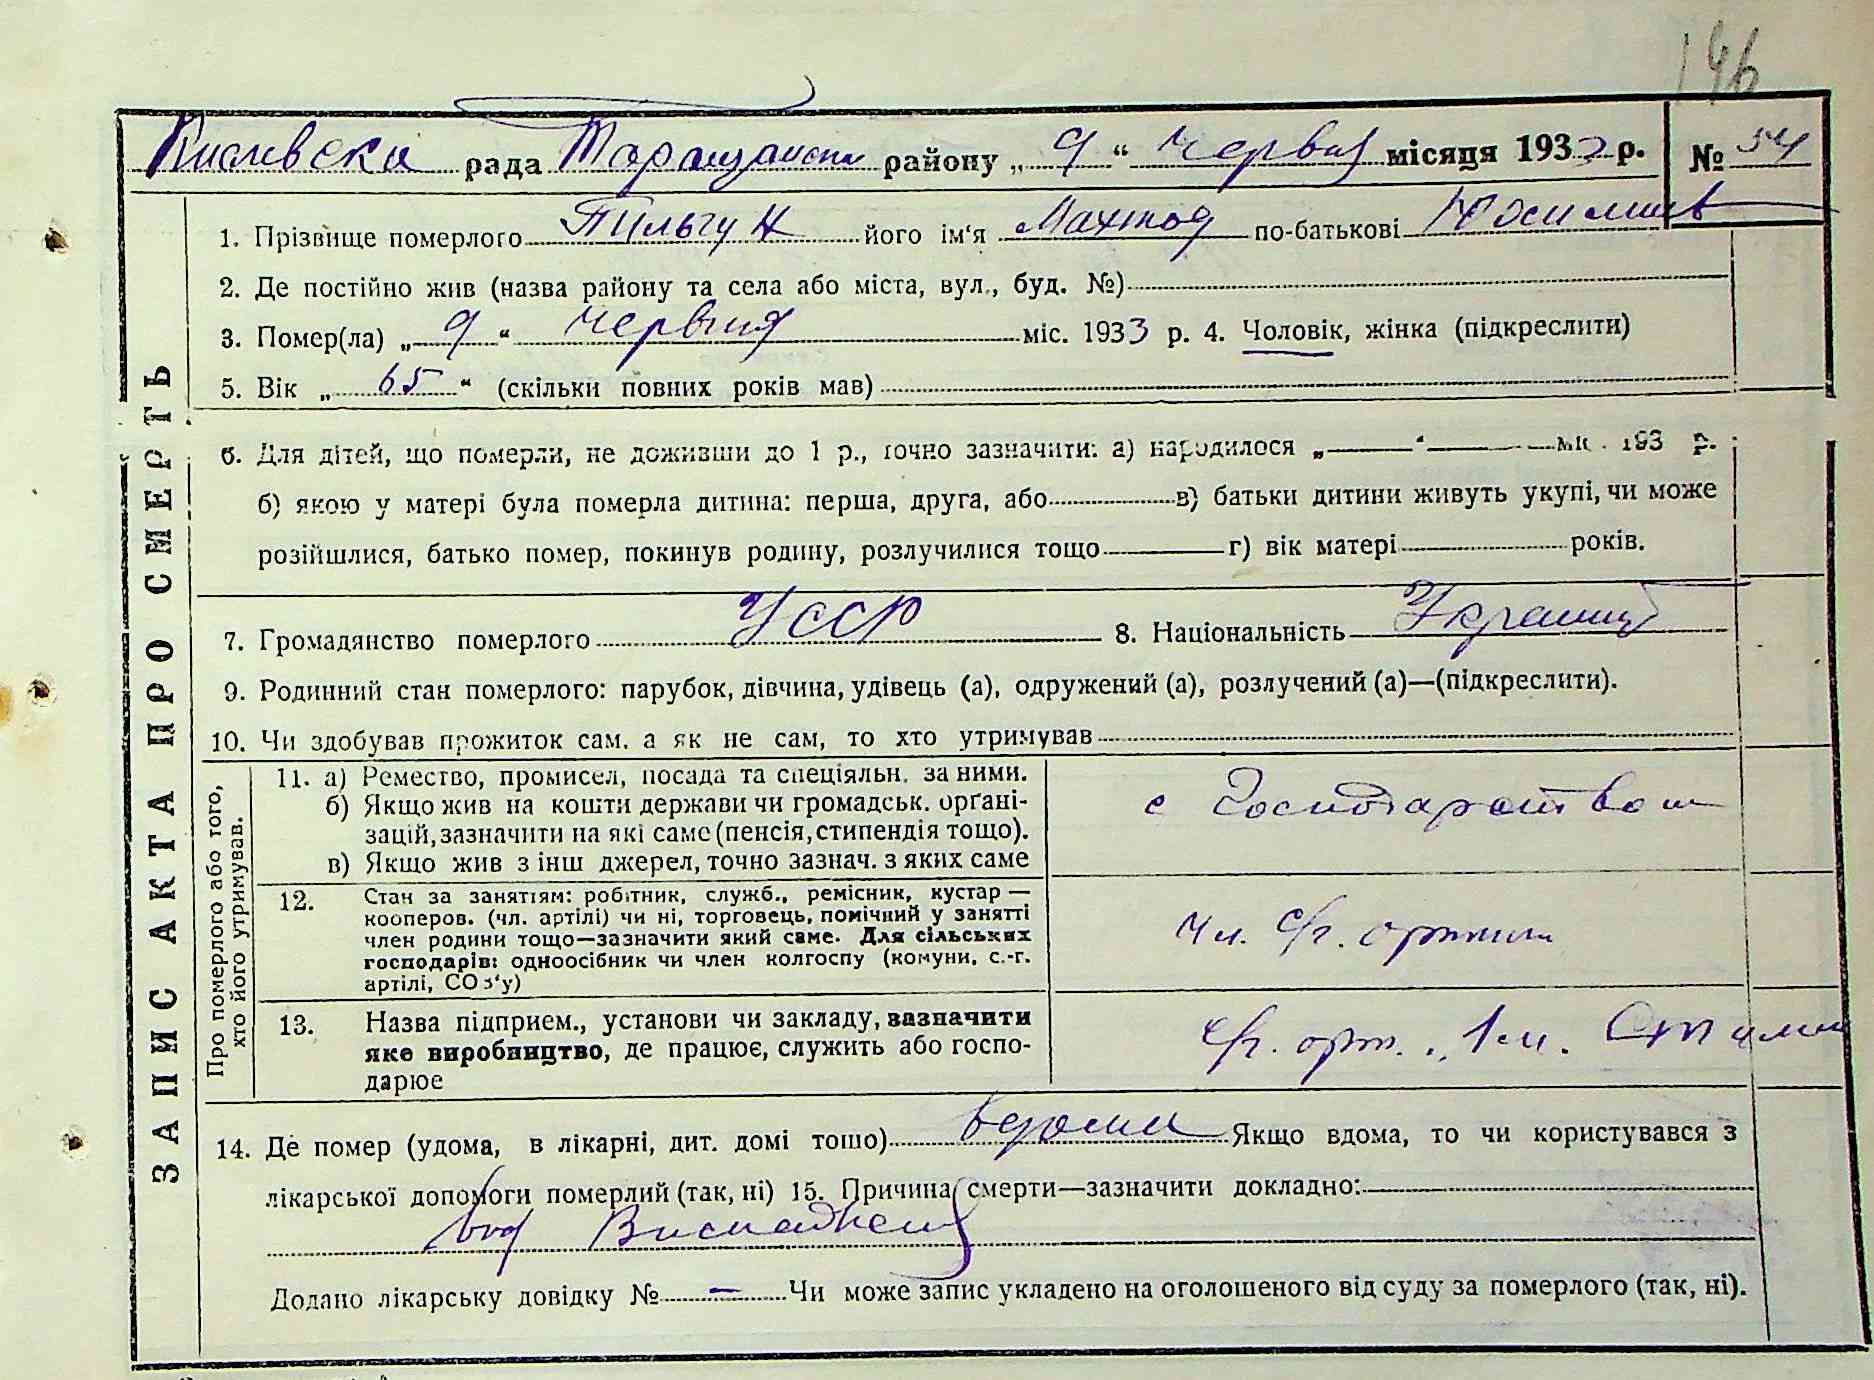 146
рада Таращанськ району „ 9 “ червня місяця 1933 р. № 54
1. Прізвище померлого Тильгун його ім‘я по-батькові
2. Де постійно жив (назва району та села або міста, вул., буд. №)
3. Помер(ла) „ 9 “ червня міс. 1933 р. 4. Чоловік, жінка (підкреслити)
5. Вік „ 65 “ (скільки повних років мав)
6. Для дітей, що померли, не доживши до 1 р., точно зазначити: а) народилося „ “ міс. 193 р.
б) якою у матері була померла дитина: перша, друга, або в) батьки дитини живуть укупі, чи може
розійшлися, батько помер, покинув родину, розлучилися тощо г) вік матері років.
7. Громадянство померлого УССР 8. Національність Украинц
9. Родинний стан померлого: парубок, дівчина, удівець (а), одружений (а), розлучений (а)—(підкреслити).
10. Чи здобував прожиток сам. а як не сам, то хто утримував
ЗАПИС АКТА ПРО СМЕРТЬ
Про померлого або того,
хто його утримував.
11. а) Ремество, промисел, посада та спеціяльн. за ними.
б) Якщо жив на кошти держави чи громадськ. орґані-
зацій, зазначити на які саме (пенсія, стипендія тощо).
в) Якщо жив з інш джерел, точно зазнач. з яких саме
с Господарством
12. Стан за заняттям: робітник, служб., ремісник, кустар —
кооперов. (чл. артілі) чи ні, торговець, помічний у занятті
член родини тощо—зазначити який саме. Для сільських
господарів: одноосібник чи член колгоспу (комуни, с.-г.
артілі, СОз‘у)
чл. с/г. артили
13. Назва підприєм., установи чи закладу, вазначити
яке виробництво, де працює, служить або госпо-
дарює
с/г. арт. „Ім. Сталин
14. Де помер (удома, в лікарні, дит. домі тошо) вдоми Якщо вдома, то чи користувався з
лікарської допомоги померлий (так, ні) 15. Причина смерти—зазначити докладно:
від Виснаження
Додано лікарську довідку № — Чи може запис укладено на оголошеного від суду за померлого (так, ні).